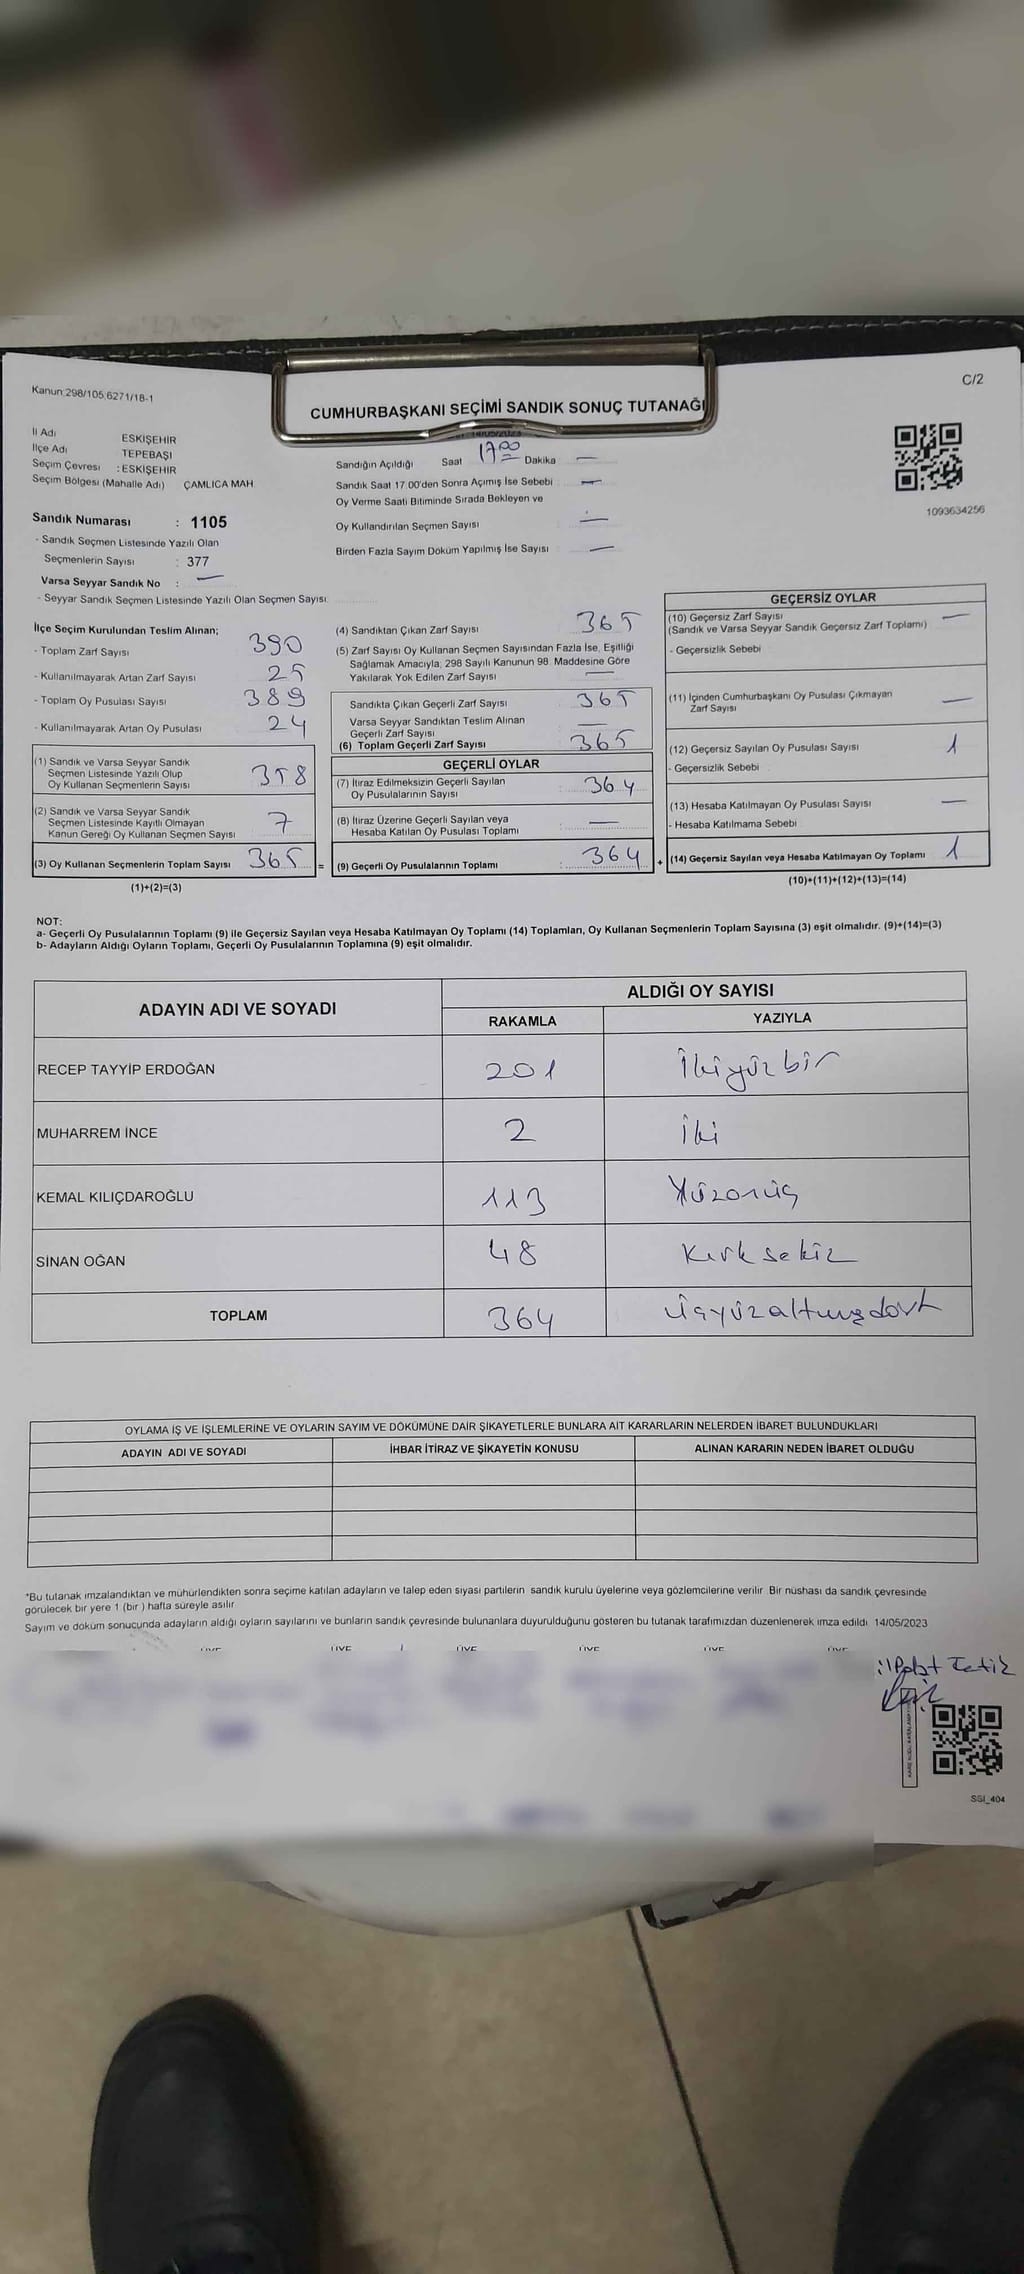 Kanun:298/105,6271/18-1
C/2
CUMHURBAŞKANI SEÇİMİ SANDIK SONUÇ TUTANAĞI
14/05/2023
İl Adı ESKİŞEHİR
İlçe Adı TEPEBAŞI
Seçim Çevresi : ESKİŞEHİR
Seçim Bölgesi (Mahalle Adı) ÇAMLICA MAH
Sandık Numarası : 1105
- Sandık Seçmen Listesinde Yazılı Olan
Seçmenlerin Sayısı : 377
Varsa Seyyar Sandık No : —
- Seyyar Sandık Seçmen Listesinde Yazılı Olan Seçmen Sayısı:
Sandığın Açıldığı Saat 17 00 Dakika —
Sandık Saat 17.00'den Sonra Açımış İse Sebebi —
Oy Verme Saati Bitiminde Sırada Bekleyen ve
Oy Kullandırılan Seçmen Sayısı —
Birden Fazla Sayım Döküm Yapılmış İse Sayısı —
1093634256
İlçe Seçim Kurulundan Teslim Alınan;
- Toplam Zarf Sayısı 390
- Kullanılmayarak Artan Zarf Sayısı 25
- Toplam Oy Pusulası Sayısı 389
- Kullanılmayarak Artan Oy Pusulası 24
(1) Sandık ve Varsa Seyyar Sandık
Seçmen Listesinde Yazılı Olup
Oy Kullanan Seçmenlerin Sayısı 358
(2) Sandık ve Varsa Seyyar Sandık
Seçmen Listesinde Kayıtlı Olmayan
Kanun Gereği Oy Kullanan Seçmen Sayısı 7
(3) Oy Kullanan Seçmenlerin Toplam Sayısı 365 =
(1)+(2)=(3)
(4) Sandıktan Çıkan Zarf Sayısı 365
(5) Zarf Sayısı Oy Kullanan Seçmen Sayısından Fazla İse, Eşitliği
Sağlamak Amacıyla, 298 Sayılı Kanunun 98. Maddesine Göre
Yakılarak Yok Edilen Zarf Sayısı —
Sandıkta Çıkan Geçerli Zarf Sayısı 365
Varsa Seyyar Sandıktan Teslim Alınan
Geçerli Zarf Sayısı —
(6) Toplam Geçerli Zarf Sayısı 365
GEÇERLİ OYLAR
(7) İtiraz Edilmeksizin Geçerli Sayılan
Oy Pusulalarının Sayısı : 364
(8) İtiraz Üzerine Geçerli Sayılan veya
Hesaba Katılan Oy Pusulası Toplamı : —
(9) Geçerli Oy Pusulalarının Toplamı : 364 +
GEÇERSİZ OYLAR
(10) Geçersiz Zarf Sayısı —
(Sandık ve Varsa Seyyar Sandık Geçersiz Zarf Toplamı)
- Geçersizlik Sebebi
(11) İçinden Cumhurbaşkanı Oy Pusulası Çıkmayan
Zarf Sayısı —
(12) Geçersiz Sayılan Oy Pusulası Sayısı 1
- Geçersizlik Sebebi
(13) Hesaba Katılmayan Oy Pusulası Sayısı —
- Hesaba Katılmama Sebebi
(14) Geçersiz Sayılan veya Hesaba Katılmayan Oy Toplamı 1
(10)+(11)+(12)+(13)=(14)
NOT:
a- Geçerli Oy Pusulalarının Toplamı (9) ile Geçersiz Sayılan veya Hesaba Katılmayan Oy Toplamı (14) Toplamları, Oy Kullanan Seçmenlerin Toplam Sayısına (3) eşit olmalıdır. (9)+(14)=(3)
b- Adayların Aldığı Oyların Toplamı, Geçerli Oy Pusulalarının Toplamına (9) eşit olmalıdır.
ADAYIN ADI VE SOYADI ALDIĞI OY SAYISI
RAKAMLA YAZIYLA
RECEP TAYYİP ERDOĞAN 201 İkiyüzbir
MUHARREM İNCE 2 İki
KEMAL KILIÇDAROĞLU 113 Yüzonüç
SİNAN OĞAN 48 Kırksekiz
TOPLAM 364 Üçyüzaltmışdört
OYLAMA İŞ VE İŞLEMLERİNE VE OYLARIN SAYIM VE DÖKÜMÜNE DAİR ŞİKAYETLERLE BUNLARA AİT KARARLARIN NELERDEN İBARET BULUNDUKLARI
ADAYIN ADI VE SOYADI İHBAR İTİRAZ VE ŞİKAYETİN KONUSU ALINAN KARARIN NEDEN İBARET OLDUĞU
*Bu tutanak imzalandıktan ve mühürlendikten sonra seçime katılan adayların ve talep eden siyasi partilerin sandık kurulu üyelerine veya gözlemcilerine verilir. Bir nüshası da sandık çevresinde
görülecek bir yere 1 (bir ) hafta süreyle asılır
Sayım ve döküm sonucunda adayların aldığı oyların sayılarını ve bunların sandık çevresinde bulunanlara duyurulduğunu gösteren bu tutanak tarafımızdan düzenlenerek imza edildi 14/05/2023
ÜYE ÜYE ÜYE ÜYE ÜYE ÜYE
SGI_404